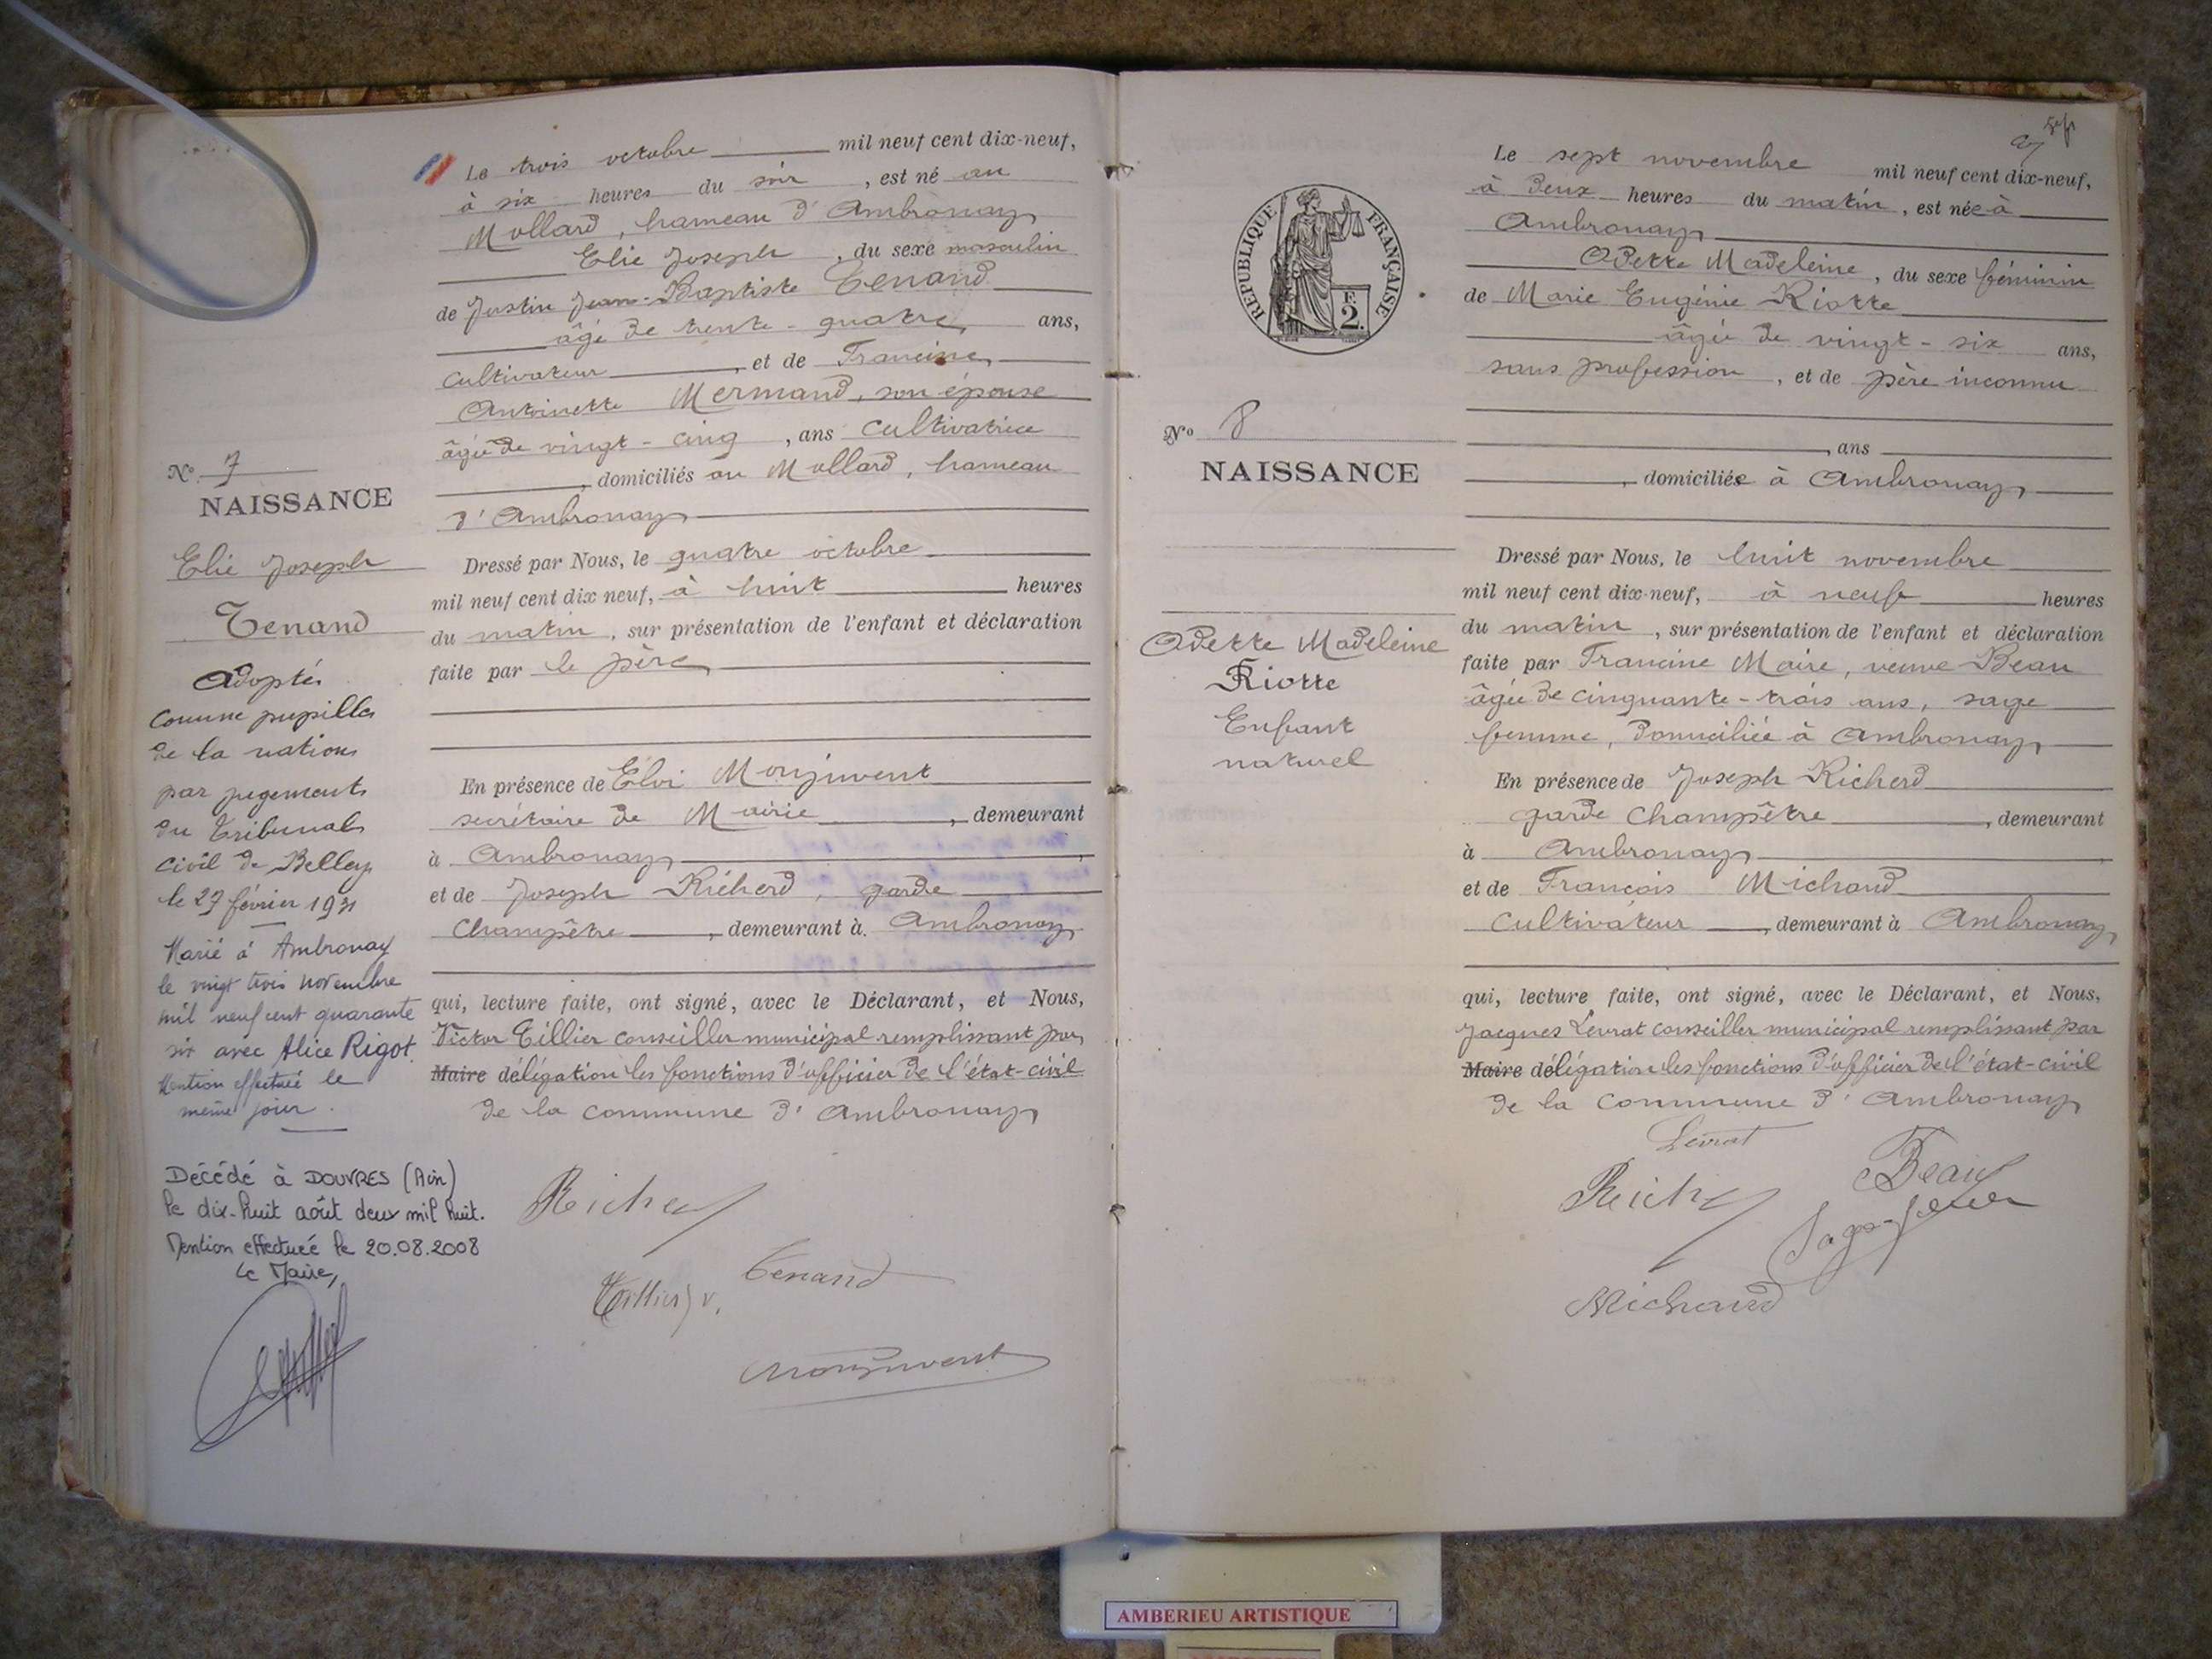 Le trois octobre mil neuf cent dix-neuf,
à six heures du soir, est né au
Mollard, hameau d'Ambronay
Elie Joseph, du sexe masculin
de Justin Jean-Baptiste Tenand
âgé de trente-quatre ans,
cultivateur, et de Francine
Antoinette Mermand, son épouse
âgée de vingt-cinq, ans cultivatrice
, domiciliés au Mollard, hameau
d'Ambronay
Dressé par Nous, le quatre octobre
mil neuf cent dix neuf, à huit heures
du matin, sur présentation de l'enfant et déclaration
faite par le père
En présence de Éloi Monjuvent
secrétaire de Mairie, demeurant
à Ambronay
et de Joseph Richerd, garde
Champêtre, demeurant à Ambronay
qui, lecture faite, ont signé, avec le Déclarant, et Nous,
Victor Tillier conseiller municipal remplissant par
Maire délégation les fonctions d'officier de l'état-civil
de la commune d'Ambronay
Richer
Tenand
Tillier V.
Monjuvent
No 7
NAISSANCE
Elie Joseph
Tenand
Adopté
comme pupille
de la nation
par jugement
du Tribunal
civil de Belley
le 27 février 1931
Marié à Ambronay
le vingt trois novembre
mil neuf cent quarante
six avec Alice Rigot.
Mention effectuée le
même jour.
Décédé à DOUVRES (Ain)
le dix-huit août deux mil huit.
Mention effectuée le 20.08.2008
Le Maire,
RÉPUBLIQUE FRANÇAISE
F.
2.
No 8
NAISSANCE
Odette Madeleine
Riotte
Enfant
naturel
Le sept novembre mil neuf cent dix-neuf,
à deux heures du matin, est née à
Ambronay
Odette Madeleine, du sexe féminin
de Marie Eugénie Riotte
âgée de vingt-six ans,
sans profession, et de père inconnu
, ans
, domiciliée à Ambronay
Dressé par Nous, le huit novembre
mil neuf cent dix-neuf, à neuf heures
du matin, sur présentation de l'enfant et déclaration
faite par Francine Maire, veuve Beau
âgée de cinquante-trois ans, sage
femme, domiciliée à Ambronay
En présence de Joseph Richerd
garde Champêtre, demeurant
à Ambronay
et de François Michaud
cultivateur, demeurant à Ambronay
qui, lecture faite, ont signé, avec le Déclarant, et Nous,
Jacques Levrat conseiller municipal remplissant par
Maire délégation les fonctions d'officier de l'état-civil
de la commune d'Ambronay
Levrat
Beau
Riche
Sage-femme
Michaud
AMBERIEU ARTISTIQUE